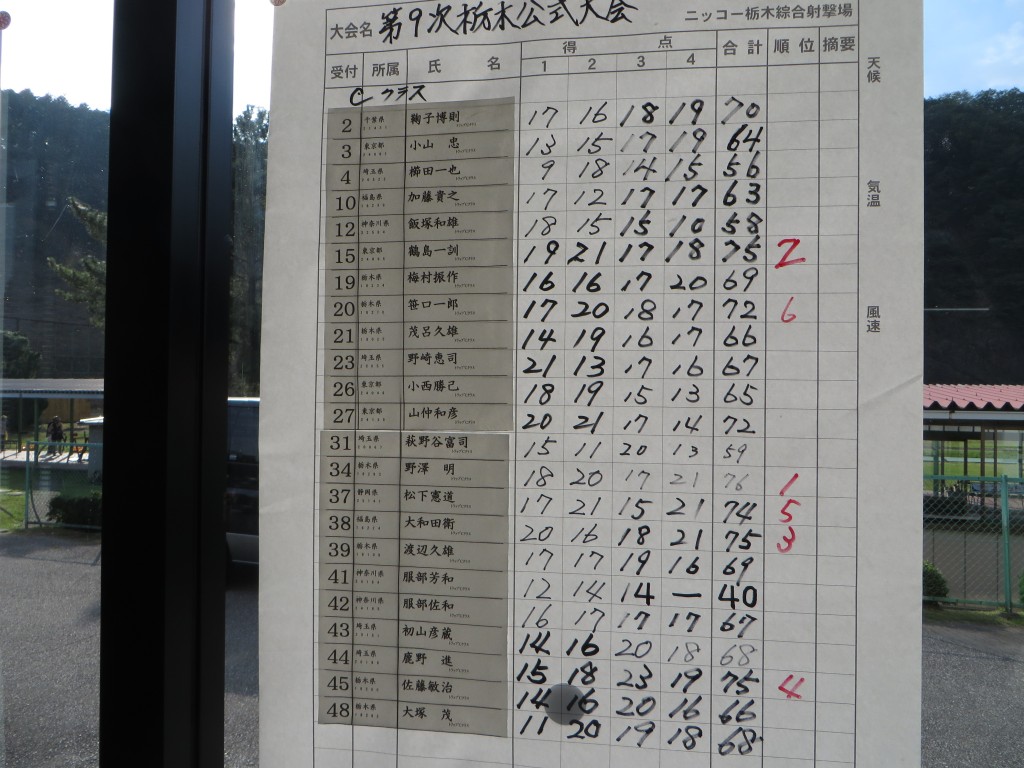 大会名 第9次栃木公式大会 ニッコー栃木綜合射撃場
受付 所属 氏名 得点 1 2 3 4 合計 順位 摘要
天候
気温
風速
Cクラス
2 千葉県 鞠子博則 17 16 18 19 70
3 東京都 小山 忠 13 15 17 19 64
4 埼玉県 櫛田一也 9 18 14 15 56
10 福島県 加藤貴之 17 12 17 17 63
12 神奈川県 飯塚和雄 18 15 15 10 58
15 東京都 鶴島一訓 19 21 17 18 75 2
19 栃木県 梅村振作 16 16 17 20 69
20 栃木県 笹口一郎 17 20 18 17 72 6
21 栃木県 茂呂久雄 14 19 16 17 66
23 埼玉県 野崎恵司 21 13 17 16 67
26 東京都 小西勝己 18 19 15 13 65
27 東京都 山仲和彦 20 21 17 14 72
31 埼玉県 萩野谷富司 15 11 20 13 59
34 栃木県 野澤 明 18 20 17 21 76 1
37 静岡県 松下憲道 17 21 15 21 74 5
38 福島県 大和田衛 20 16 18 21 75 3
39 栃木県 渡辺久雄 17 17 19 16 69
41 神奈川県 服部芳和 12 14 14 ー 40
42 神奈川県 服部佐和 16 17 17 17 67
43 埼玉県 初山彦蔵 14 16 20 18 68
44 埼玉県 鹿野 進 15 18 23 19 75 4
45 栃木県 佐藤敏治 14 16 20 16 66
48 栃木県 大塚 茂 11 20 19 18 68